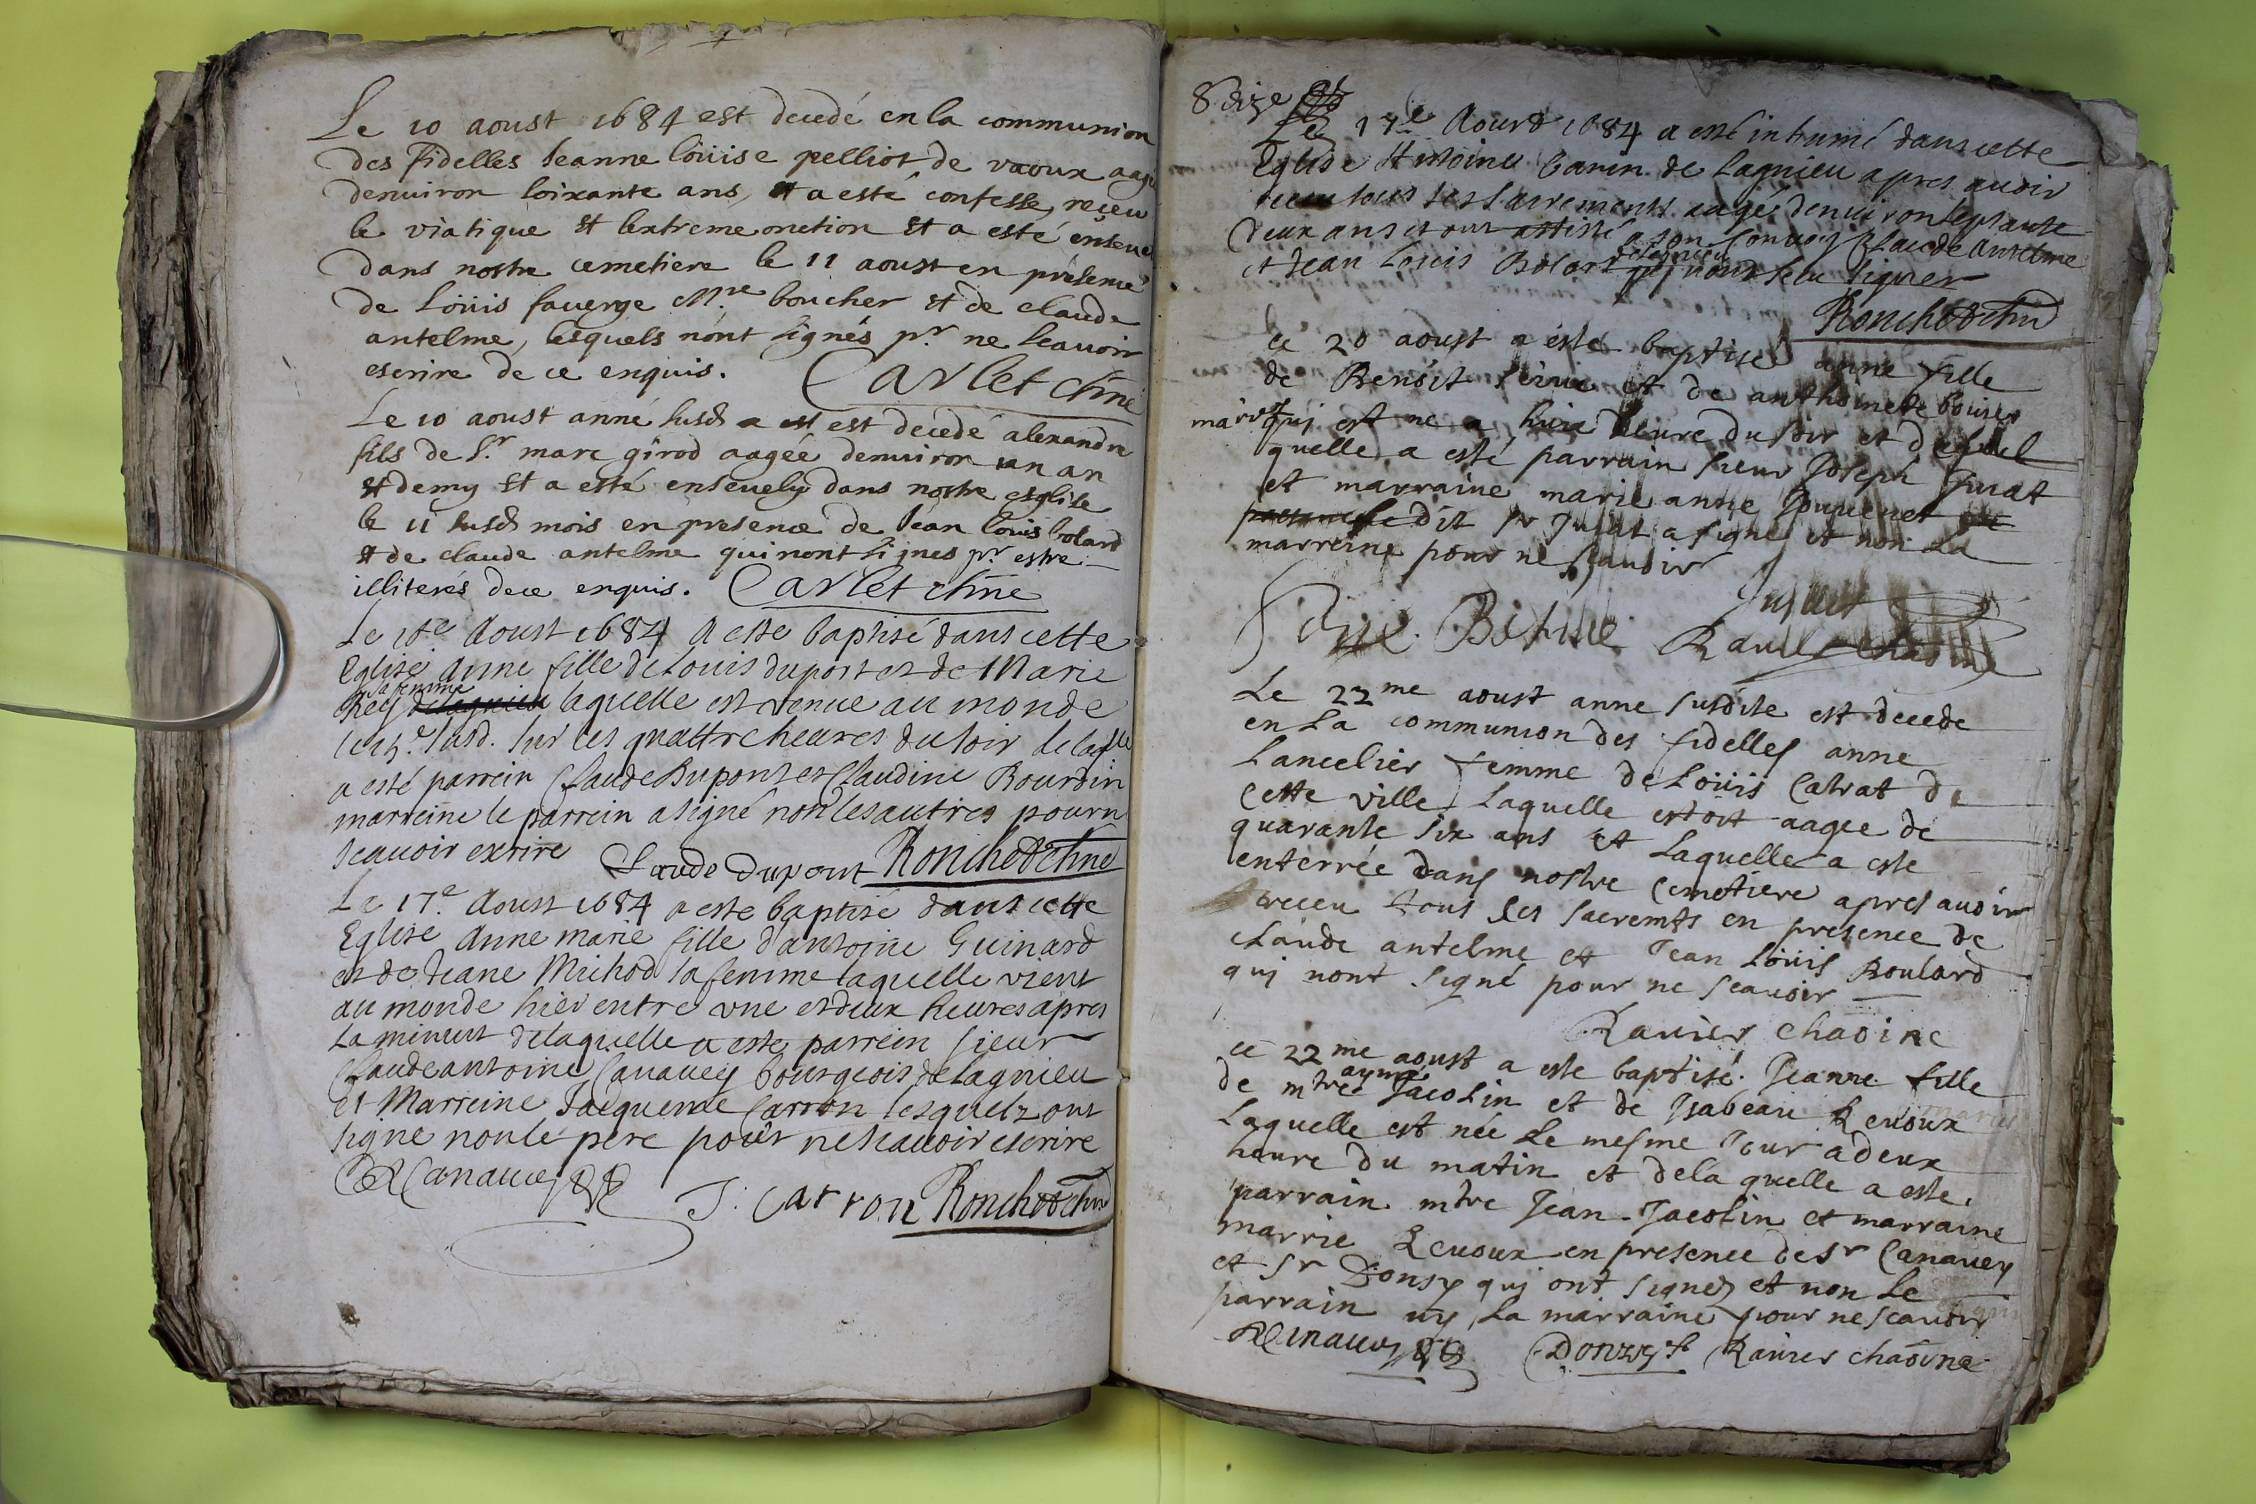 Le 10 aoust 1684 est decedé en la communion
des fidelles Jeanne loüise pelliot de vaoux aagé
denuiron soixante ans, et a esté confesse, reçeu
le viatique et lextreme onction et a esté enseue
dans nostre cemetiere le 11 aoust en presence
de Loüis faverge Mre boucher et de claude
antelme, lesquels nont signés pr. ne scauoir
escrire de ce enquis. Carlet chne
Le 10 aoust anné susd. a est est decedé alexandre
fils de Sr. marc girod aagée denuiron un an
et demy et a esté enseuely dans nostre esglise
le 11 susd. mois en presence de Jean louis bolard
et de claude antelme qui nont signes pr. estre
illiterés de ce enquis. Carlet chne
Le 16e Aoust 1684 a este baptisé dans cette
Eglise Anne fille de Louis dupont et de Marie
sa femme
Rey laquelle est venue au monde
le 15e. susd. sur les quattre heures du soir de laqlle
a esté parrein Claude Dupont et Claudine Bourdin
marreine le parrein a signé non les autres pour n
scauoir exrire
Claude dupont Ronchod chne
Le 17e. Aoust 1684 a este baptisé dans cette
Eglise Anne marie fille d'antoine Guinard
et de Jeane Michod sa femme laquelle vient
au monde hier entre vne et deux heures apres
La minuit de laquelle a este parrein sieur
Claude antoine Canauey bourgeois de Lagnieu
et Marreine Jacqueme Carron lesquelz ont
signe non le pere pour ne scauoir escrire
Canauey J. Carron Ronchod chne
Seize
Le 17e Aoust 1684 a esté inhumé dans cette
Eglise Antoine Canin de Lagnieu apres auoir
receu tous ses sacrements aagé denuiron septante
deux ans et ont assisté a son Conuoy Claude Antelme
et Jean Louis Bolard qui nont sceu signer
Ronchod chne
ce 20 aoust a esté baptise anne fille
de Benoit et de anthoinete
qui est ne a huict heure du soir et de
quelle a esté parrain sieur Joseph Jurat
et marraine marie anne Jouuenet
dit sr Jujat a signe et non La
marreine pour ne scauoir
Jujat
Rauier chaoine
Le 22me aoust anne susdite est decede
en La communion des fidelles anne
Lancelier femme de Loüis Catrat de
cette ville Laquelle estoit aagee de
quarante six ans et Laquelle a este
enterrée dans nostre cemetiere apres auoir
receu tous les sacremts en presence de
claude antelme et Jean Loüis Boulard
qui nont signé pour ne scauoir
Rauier chaoine
ce 22me aoust a este baptisé Jeanne fille
aymé
de mtre Jacolin et de Isabeau Reuoux
Laquelle est née Le mesme Jour a deux
heure du matin et de la quelle a este
parrain mtre Jean Jacolin et marraine
marrie Reuoux en presence de Sr Canauey
et Sr Donsy qui ont signez et non Le
parrain ny La marraine pour ne scauoir
Canauey Donzy Rauier chaoine